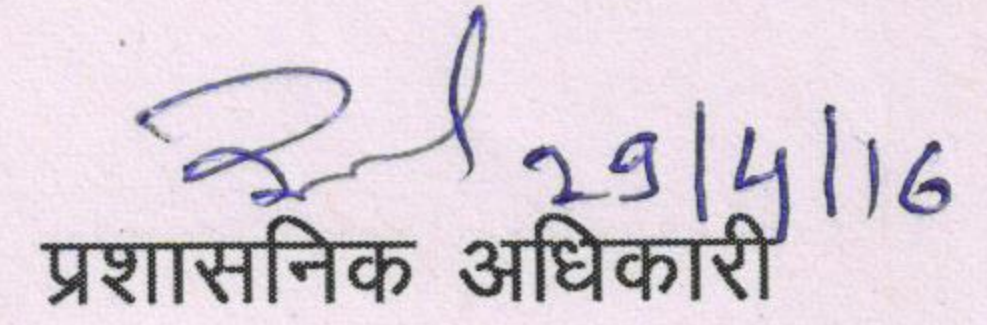 29/4/16
प्रशासनिक अधिकारी